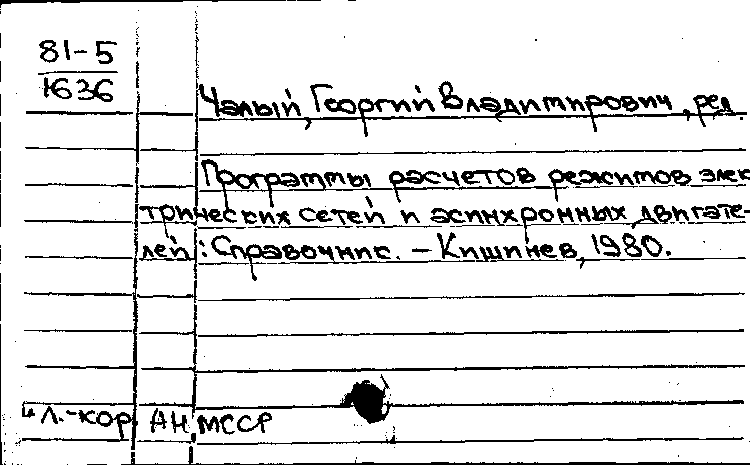 81-5
1636
Чалый, Георгий Владимирович, ред.
Программы расчетов режимов элек
трических сетей и асинхронных двигате-
лей : Справочник. – Кишинев, 1980.
Чл.-кор. АН МССР